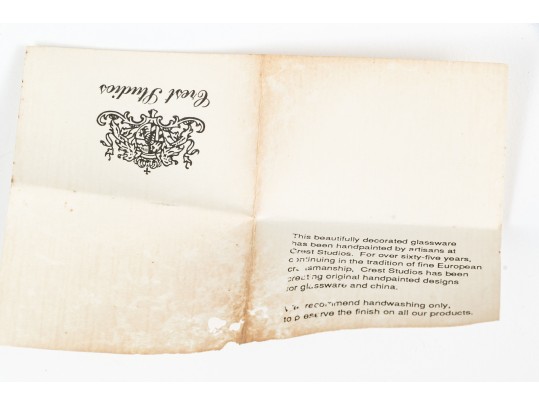 Crest Studios
This beautifully decorated glassware
has been handpainted by artisans at
Crest Studios. For over sixty-five years,
continuing in the tradition of fine European
craftsmanship, Crest Studios has been
creating original handpainted designs
for glassware and china.
We recommend handwashing only,
to preserve the finish on all our products.